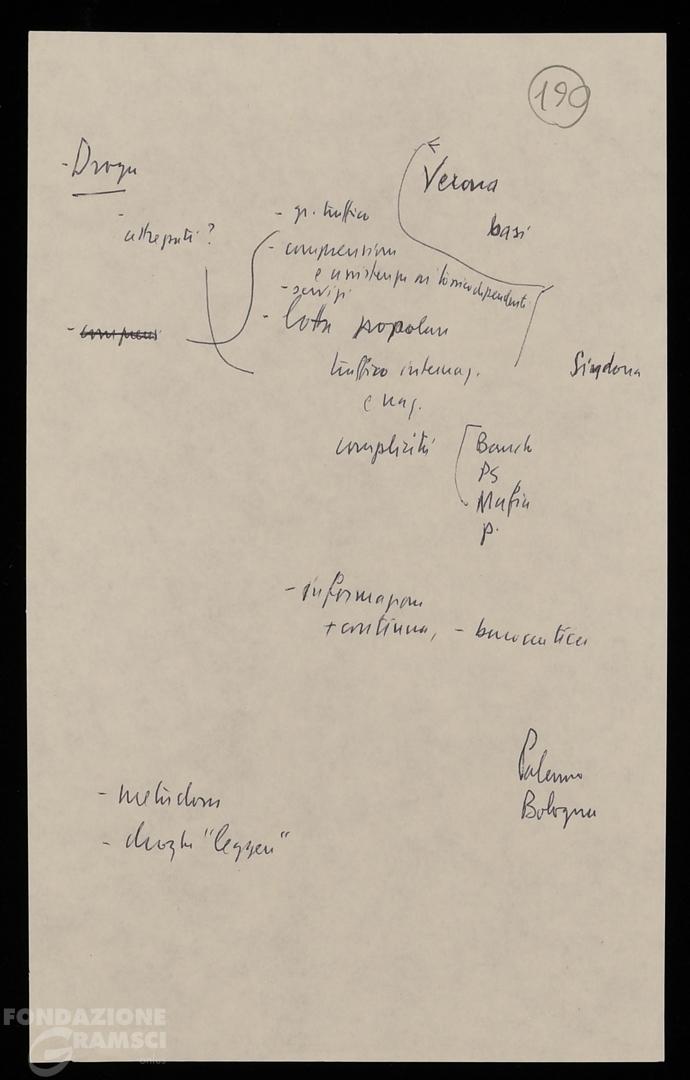 190
- Droga
- attrezzati?
- gr. traffico
- comprensione
e assistenza ai tossicodipendenti
- servizi
- lotta popolare
traffico internaz.
e naz.
complicità
Banche
PS
Mafia
P.
Verona
basi
Sindona
- informazione
+ continua, - burocratica
Palermo
Bologna
- metadone
- droghe "leggere"
FONDAZIONE
GRAMSCI
onlus